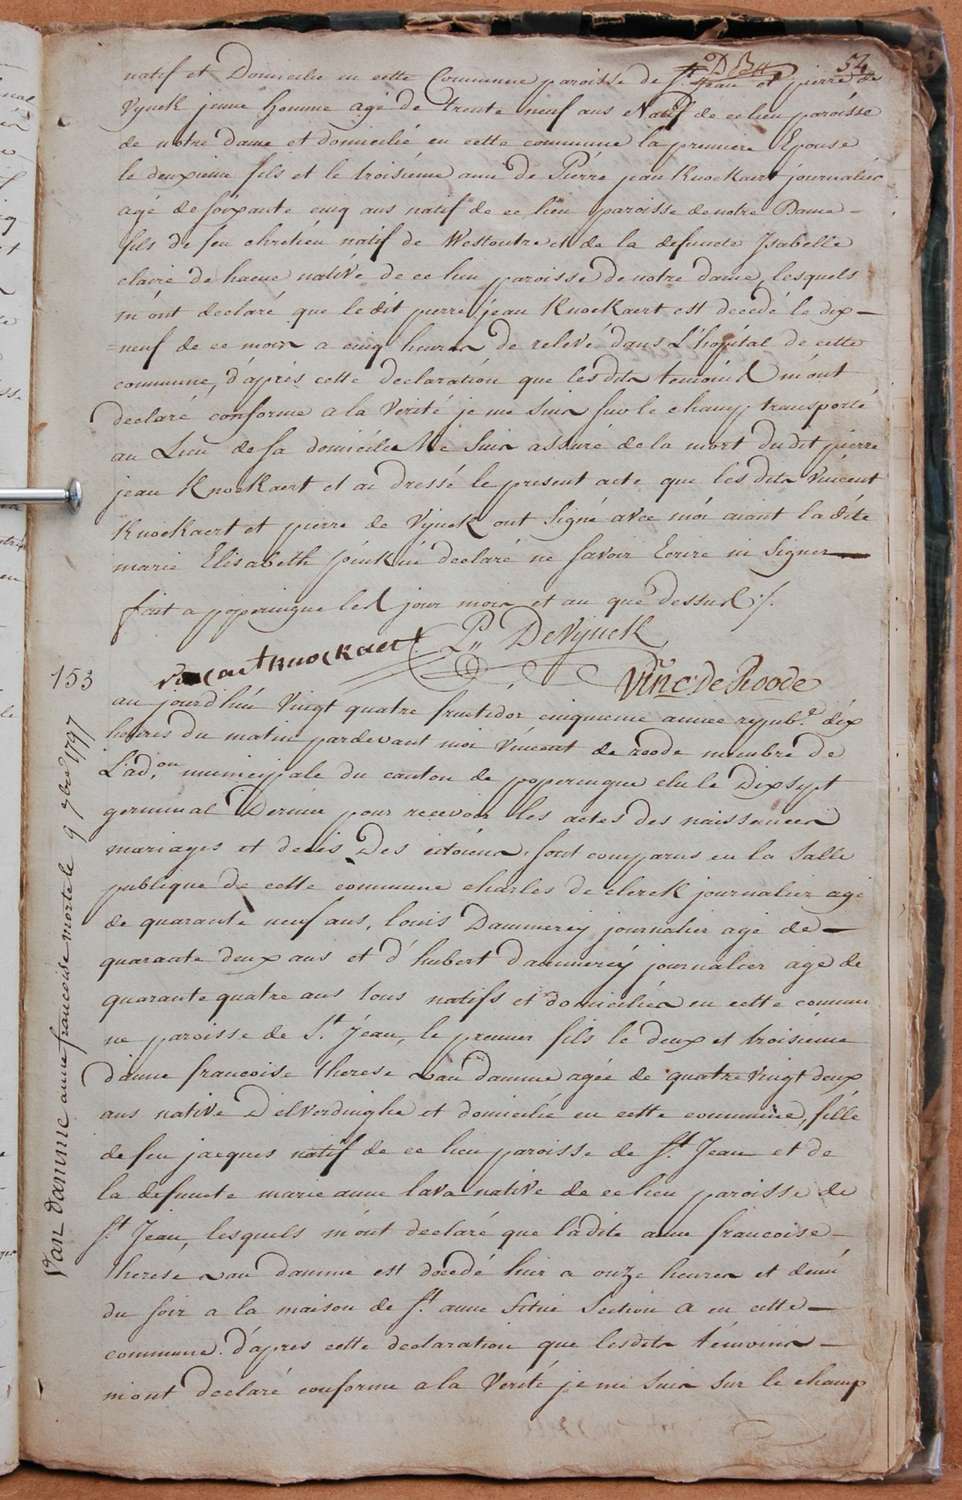 54
natif et Domicilié en cette Commune paroisse de St. Jean et pierre de
Vijnck jeune homme agé de trente neuf ans Natif de ce lieu paroisse
de notre dame et domicilié en cette commune la premiere Epouse
le deuxieme fils et le troisiéme ami de Piérre jean Knockaert journalier
agé de soixante cinq ans natif de ce lieu paroisse de notre Dame -
fils de feu chretiéu natif de Westoutre et de la defuncte Isabelle
claire de haene native de ce lieu paroisse de notre dame, lesquels
m'ont declaré que le dit pierre jean Knockaert est decedé le dix -
=neuf de ce mois a cinq heures de relevé dans L'hopital de cette
commune, d'aprés cette declaration que lesdits temoins m'ont
declaré conforme a la Verité je me suis sur le champ transporté
au Lieu de sa domicile Me suis assuré de la mort du dit piérre
jean Knockaert et ai dressé le present acte que lesdits Vincent
Knockaert et pierre de Vijnck ont signé avec moi aiant la dite
marie Elisabeth declaré ne savoir Ecrire ni Signer
fait a poperingue les jour mois et an que dessus ./.
Vincant Knockaert P. DeVijnck
Vinc. De Roode
153
au jourd'húi Vingt quatre fructidor cinquieme année repub.e dix
heures du matin pardevant moi Vincent de roode membre de
L'ad.on municipale du canton de poperingue elu le Dix sept
germinal Dernier pour recevoir les actes des naissances
mariages et decès Des citoiens, sont comparus en la Salle
publique de cette commune charles de clerck journalier agé
de quarante neuf ans, louis Dammereÿ journalier agé de -
quarante deux ans et d'hubert dammereÿ journalier agé de
quarante quatre ans tous natifs et domiciliés en cette commu
ne paroisse de St. Jean, le premier fils le deux et troisieme
d'anne francoise therese van damme agée de quatre vingt deux
ans native D'elverdinghe et domicilié en cette commune, fille
de feu jacques natif de ce lieu paroisse de St. Jean et de
la defuncte marie anne lava native de ce lieu paroisse de
St. Jean, lesquels m'ont declaré que ladite anne francoise -
therese van damme est decedé hier a onze heures et demi
du soir a la maison de St. anne Situé Section A en cette -
commune. d'aprés cette declaration que lesdits témoins -
m'ont declaré conforme a la Verité je me suis sur le champ
Van Damme anne francoise morte le 9 7bre 1797